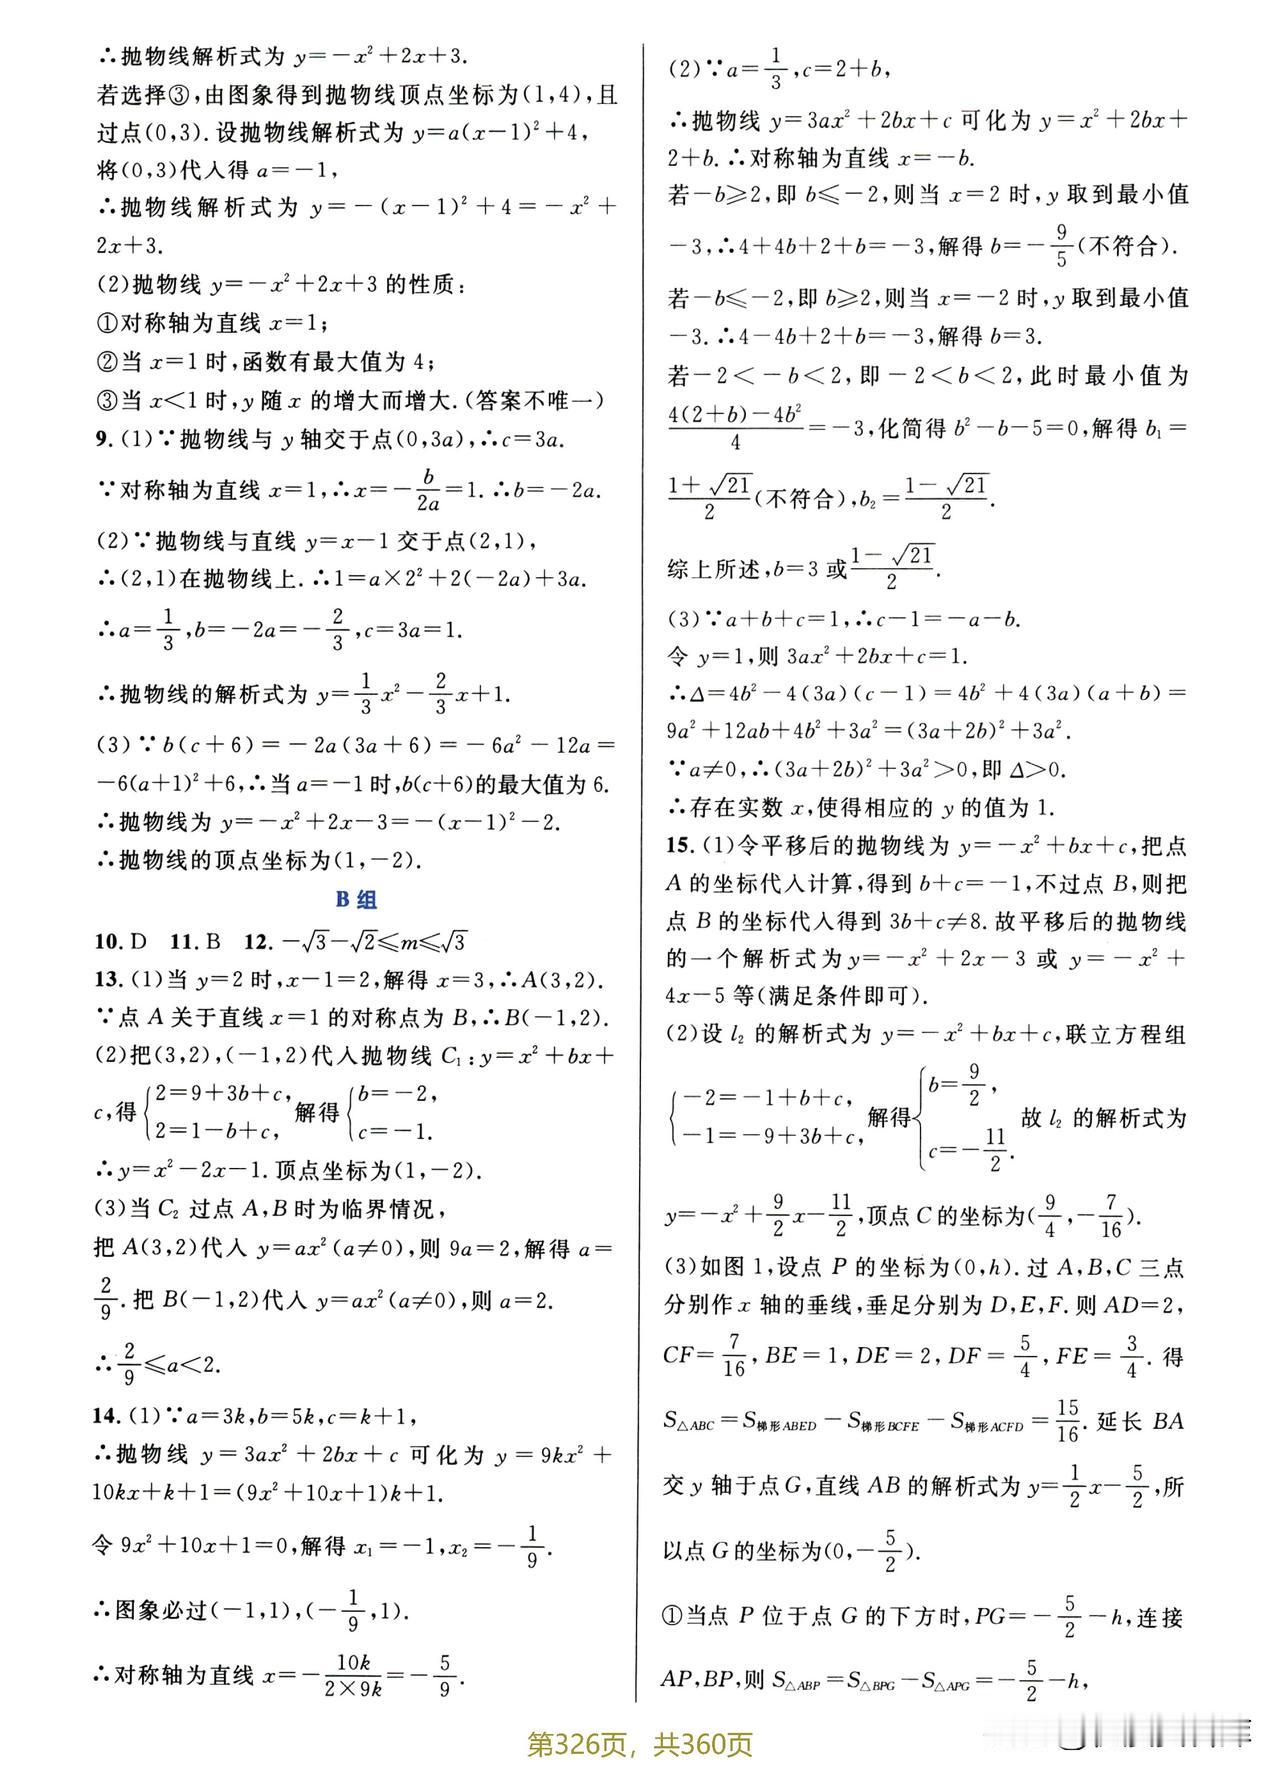 ∴抛物线解析式为 y=-x²+2x+3.
若选择③,由图象得到抛物线顶点坐标为(1,4),且
过点(0,3).设抛物线解析式为 y=a(x-1)²+4,
将(0,3)代入得 a=-1,
∴抛物线解析式为 y=-(x-1)²+4=-x²+
2x+3.
(2)抛物线 y=-x²+2x+3 的性质:
①对称轴为直线 x=1;
②当 x=1 时,函数有最大值为 4;
③当 x<1 时,y 随 x 的增大而增大.(答案不唯一)
9.(1)∵抛物线与 y 轴交于点(0,3a),∴c=3a.
∵对称轴为直线 x=1,∴x=-b/2a=1.∴b=-2a.
(2)∵抛物线与直线 y=x-1 交于点(2,1),
∴(2,1)在抛物线上.∴1=a×2²+2(-2a)+3a.
∴a=1/3,b=-2a=-2/3,c=3a=1.
∴抛物线的解析式为 y=1/3x²-2/3x+1.
(3)∵b(c+6)=-2a(3a+6)=-6a²-12a=
-6(a+1)²+6,∴当 a=-1 时,b(c+6)的最大值为 6.
∴抛物线为 y=-x²+2x-3=-(x-1)²-2.
∴抛物线的顶点坐标为(1,-2).
B 组
10.D 11.B 12.-√3-√2≤m≤√3
13.(1)当 y=2 时,x-1=2,解得 x=3,∴A(3,2).
∵点 A 关于直线 x=1 的对称点为 B,∴B(-1,2).
(2)把(3,2),(-1,2)代入抛物线 C₁:y=x²+bx+
c,得{2=9+3b+c, 2=1-b+c, 解得{b=-2, c=-1.
∴y=x²-2x-1.顶点坐标为(1,-2).
(3)当 C₂ 过点 A,B 时为临界情况,
把 A(3,2)代入 y=ax²(a≠0),则 9a=2,解得 a=
2/9.把 B(-1,2)代入 y=ax²(a≠0),则 a=2.
∴2/9≤a<2.
14.(1)∵a=3k,b=5k,c=k+1,
∴抛物线 y=3ax²+2bx+c 可化为 y=9kx²+
10kx+k+1=(9x²+10x+1)k+1.
令 9x²+10x+1=0,解得 x₁=-1,x₂=-1/9.
∴图象必过(-1,1),(-1/9,1).
∴对称轴为直线 x=-10k/2×9k=-5/9.
(2)∵a=1/3,c=2+b,
∴抛物线 y=3ax²+2bx+c 可化为 y=x²+2bx+
2+b.∴对称轴为直线 x=-b.
若-b≥2,即 b≤-2,则当 x=2 时,y 取到最小值
-3,∴4+4b+2+b=-3,解得 b=-9/5(不符合).
若-b≤-2,即 b≥2,则当 x=-2 时,y 取到最小值
-3.∴4-4b+2+b=-3,解得 b=3.
若-2<-b<2,即-2<b<2,此时最小值为
4(2+b)-4b²/4=-3,化简得 b²-b-5=0,解得 b₁=
1+√21/2(不符合),b₂=1-√21/2.
综上所述,b=3 或1-√21/2.
(3)∵a+b+c=1,∴c-1=-a-b.
令 y=1,则 3ax²+2bx+c=1.
∴Δ=4b²-4(3a)(c-1)=4b²+4(3a)(a+b)=
9a²+12ab+4b²+3a²=(3a+2b)²+3a².
∵a≠0,∴(3a+2b)²+3a²>0,即 Δ>0.
∴存在实数 x,使得相应的 y 的值为 1.
15.(1)令平移后的抛物线为 y=-x²+bx+c,把点
A 的坐标代入计算,得到 b+c=-1,不过点 B,则把
点 B 的坐标代入得到 3b+c≠8.故平移后的抛物线
的一个解析式为y=-x²+2x-3 或 y=-x²+
4x-5 等(满足条件即可).
(2)设 l₂ 的解析式为 y=-x²+bx+c,联立方程组
{-2=-1+b+c, -1=-9+3b+c, 解得{b=9/2, c=-11/2. 故 l₂ 的解析式为
y=-x²+9/2x-11/2,顶点 C 的坐标为(9/4,-7/16).
(3)如图 1,设点 P 的坐标为(0,h).过 A,B,C 三点
分别作 x 轴的垂线,垂足分别为 D,E,F.则 AD=2,
CF=7/16,BE=1,DE=2,DF=5/4,FE=3/4.得
S△ABC=S梯形ABED-S梯形BCFE-S梯形ACFD=15/16.延长 BA
交 y 轴于点G,直线 AB 的解析式为 y=1/2x-5/2,所
以点 G 的坐标为(0,-5/2).
①当点 P 位于点 G 的下方时,PG=-5/2-h,连接
AP,BP,则 S△ABP=S△BPG-S△APG=-5/2-h,
第326页，共360页